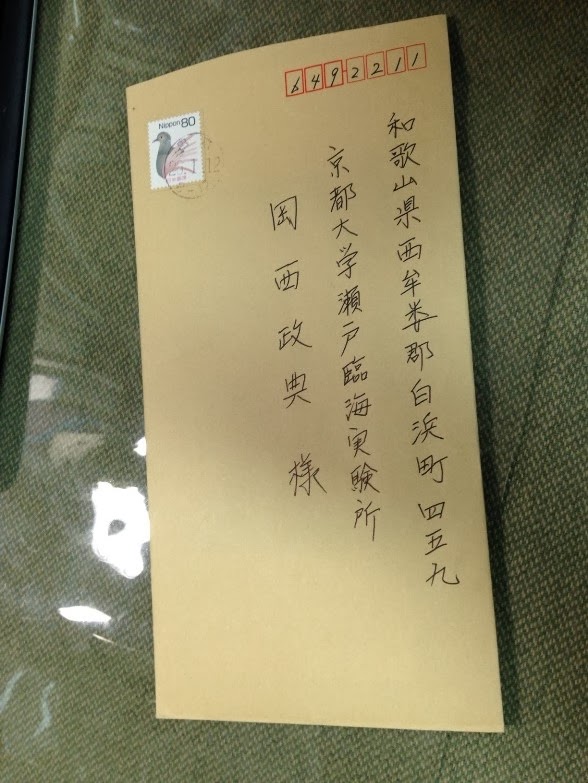 6492211
和歌山県西牟婁郡白浜町四五九
京都大学瀬戸臨海実験所
岡西政典様
Nippon 80